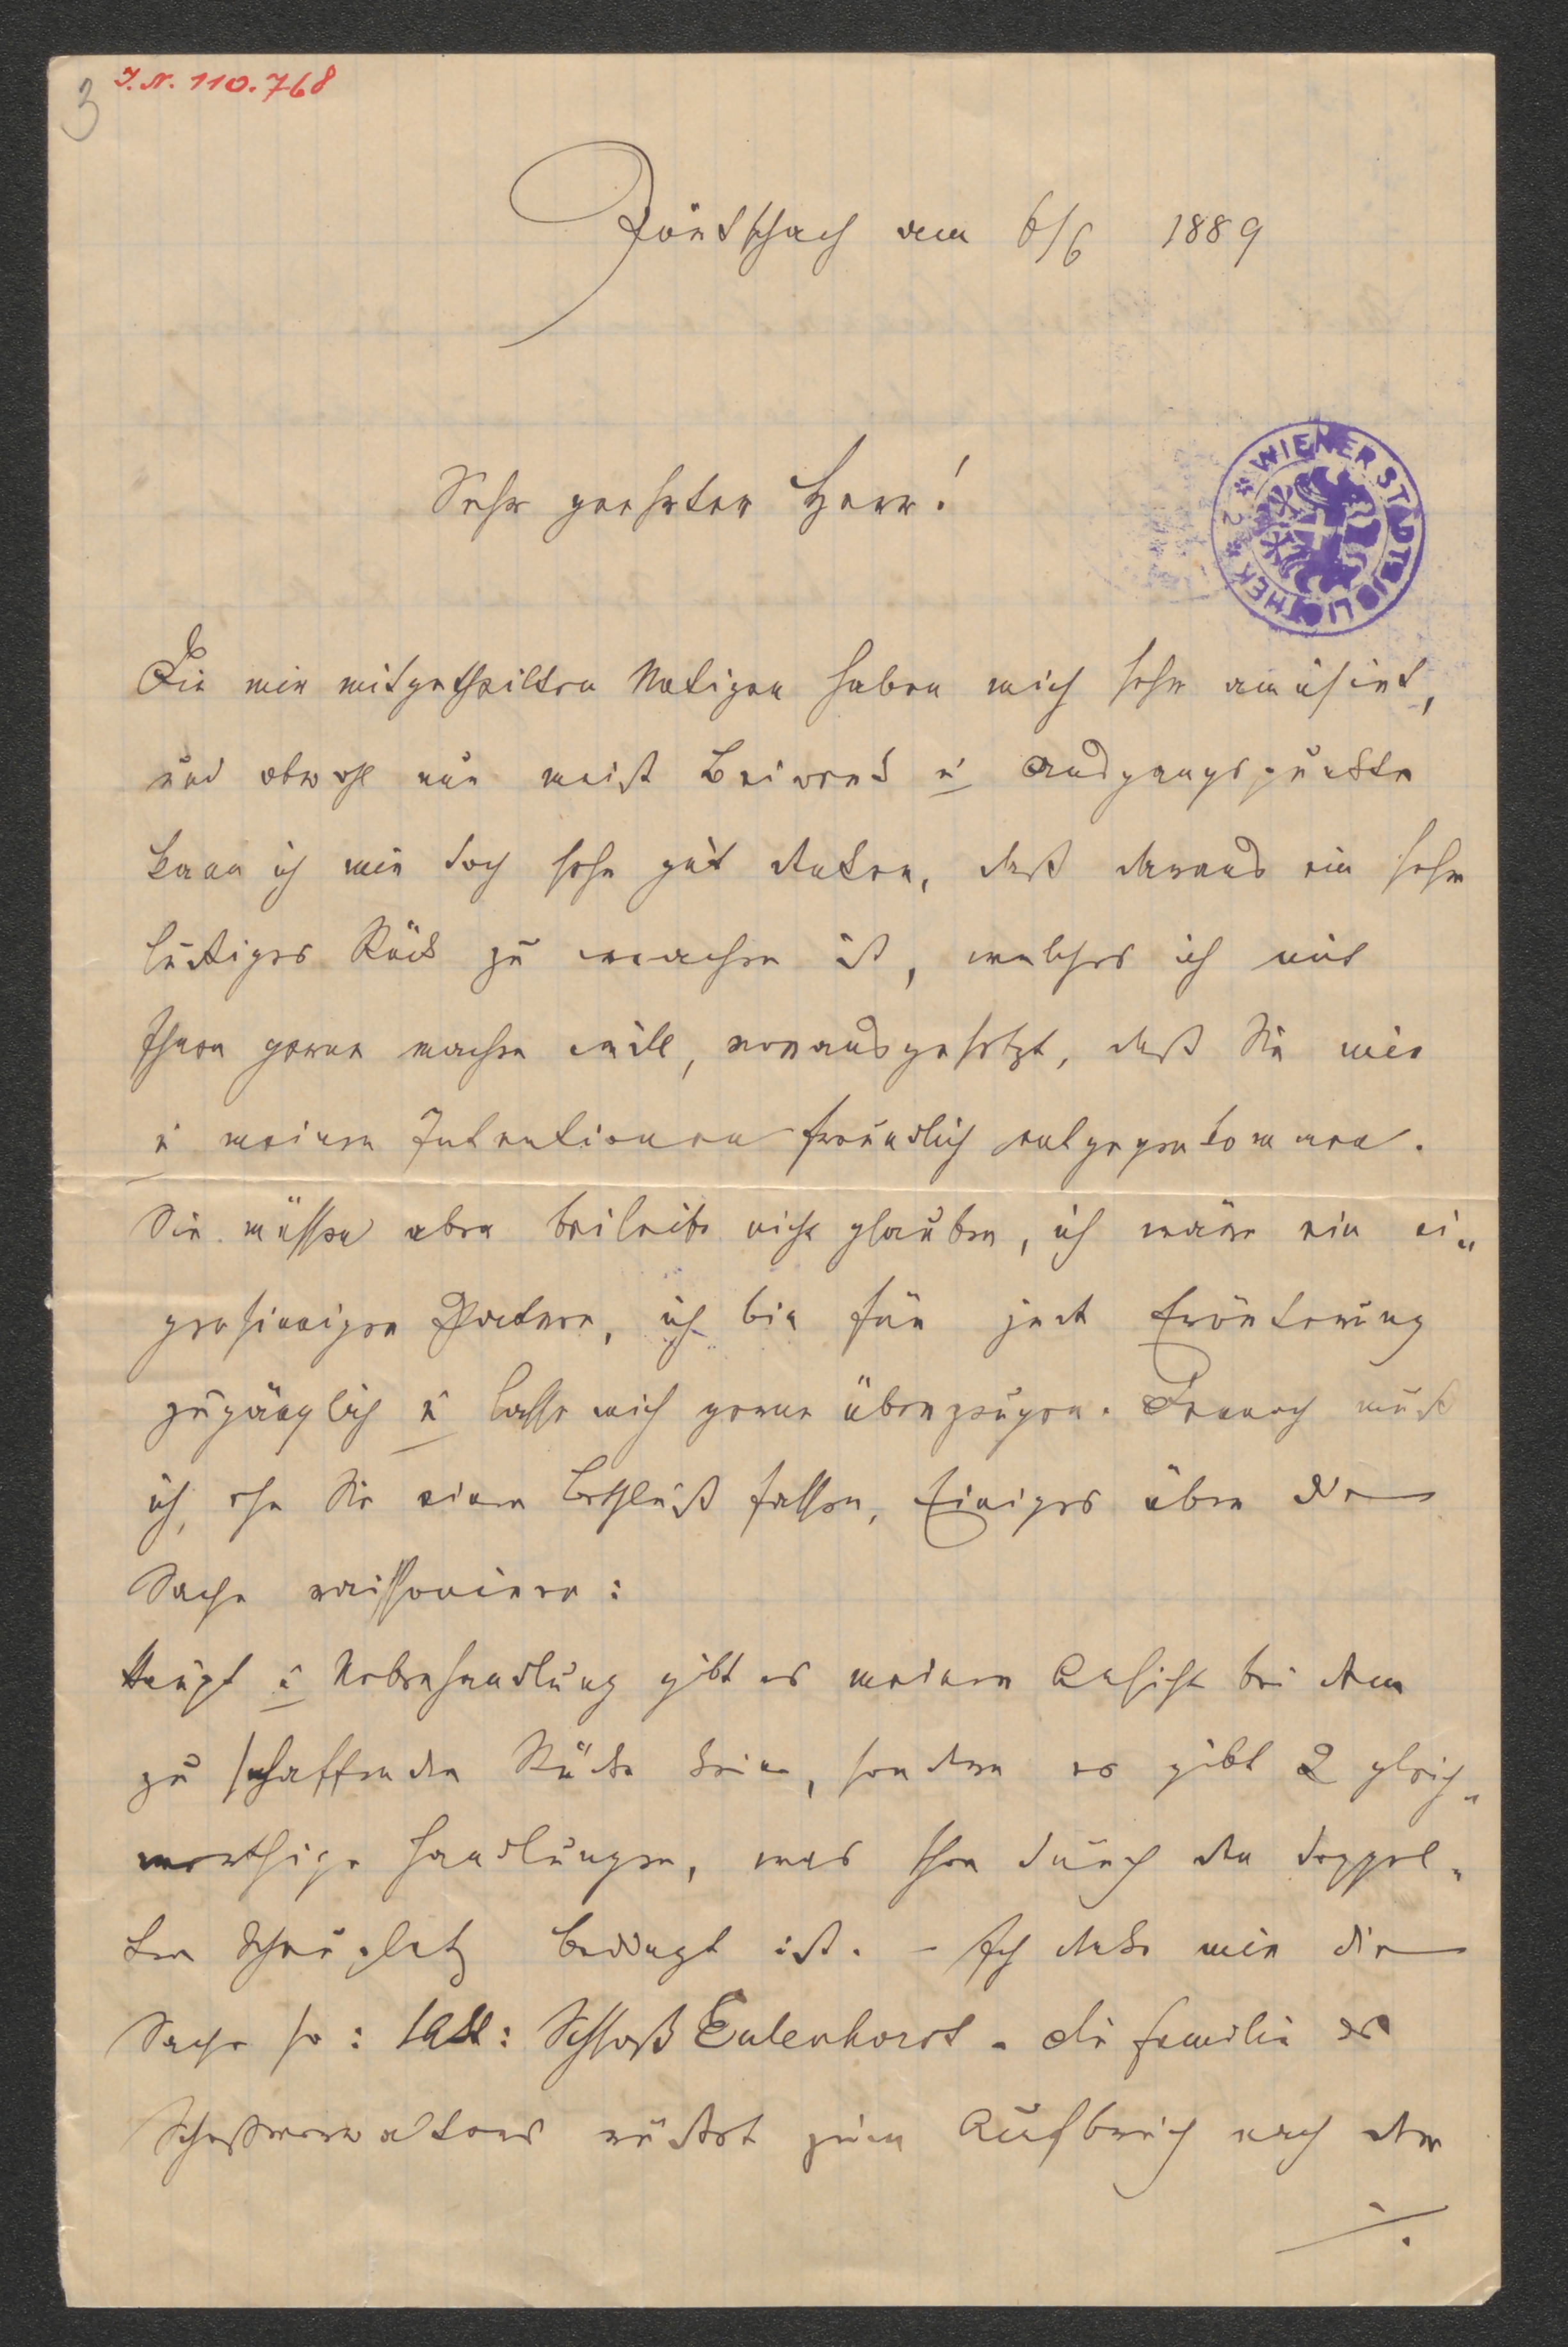 3 I.N. 110.768
Pörtschach am 6/6 1889
Sehr geehrter Herr!
WIENER STADTBIBLIOTHEK * 2 *
Die mir mitgetheilten Notizen haben mich sehr amüsirt,
und obwohl nur meist Beiwerk u Ausgangspunkte
kann ich mir doch sehr gut denken, daß daraus ein sehr
lustiges Stück zu machen ist, welches ich mit
Ihnen gerne machen will, vorausgesetzt, daß Sie mir
u meinen Intentionen freundlich entgegenkommen.
Sie müssen aber beileibe nicht glauben, ich wäre ein ei-
gensinniger Partner, ich bin für jede Erörterung
zugänglich u lasse mich gerne überzeugen. Dennoch muß
ich, ehe Sie einen Entschluß fassen, Einiges über die
Sache raissoniren:
Haupt u Nebenhandlung gibt es meiner Ansicht bei dem
zu schaffenden Stücke keine, sondern es gibt 2 gleich-
werthige Handlungen, was schon durch den doppel-
ten Schauplatz bedingt ist. – Ich denke mir die
Sache so: I Akt: Schloß Eulenhorst. die Familie des
Schloßverwalters rüstet zum Aufbruch nach der
./.